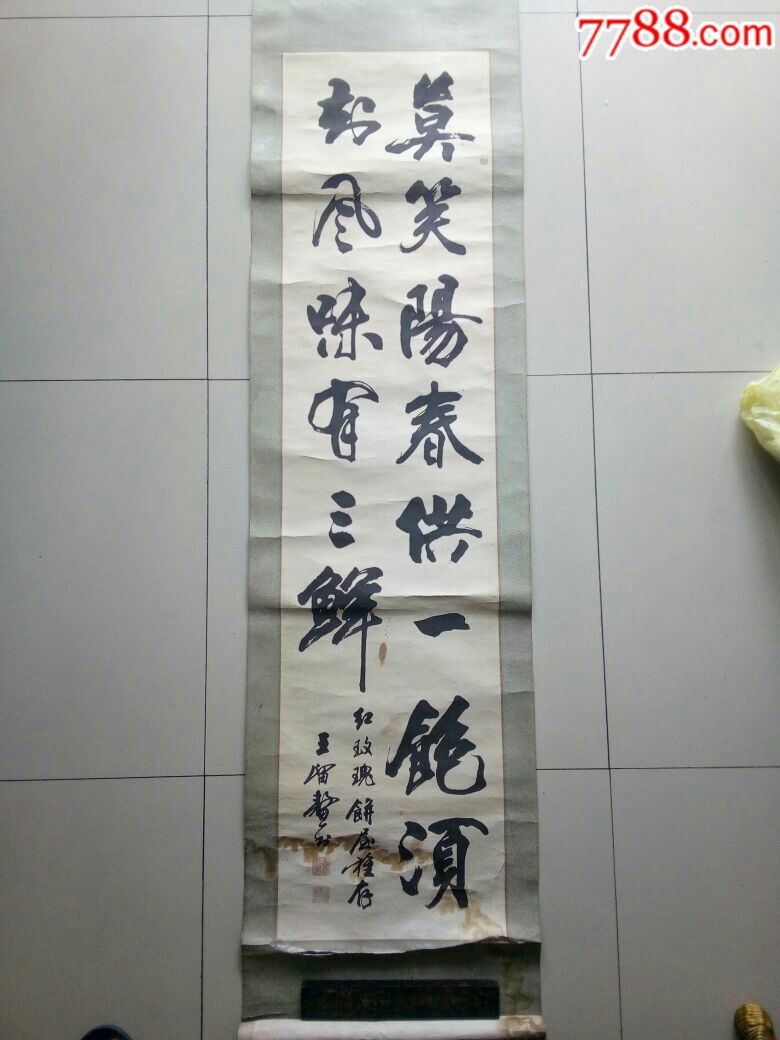 7788.com
莫笑陽春供一飽須
知風味有三鮮
紅玫瑰餅屋雅存
王留鰲